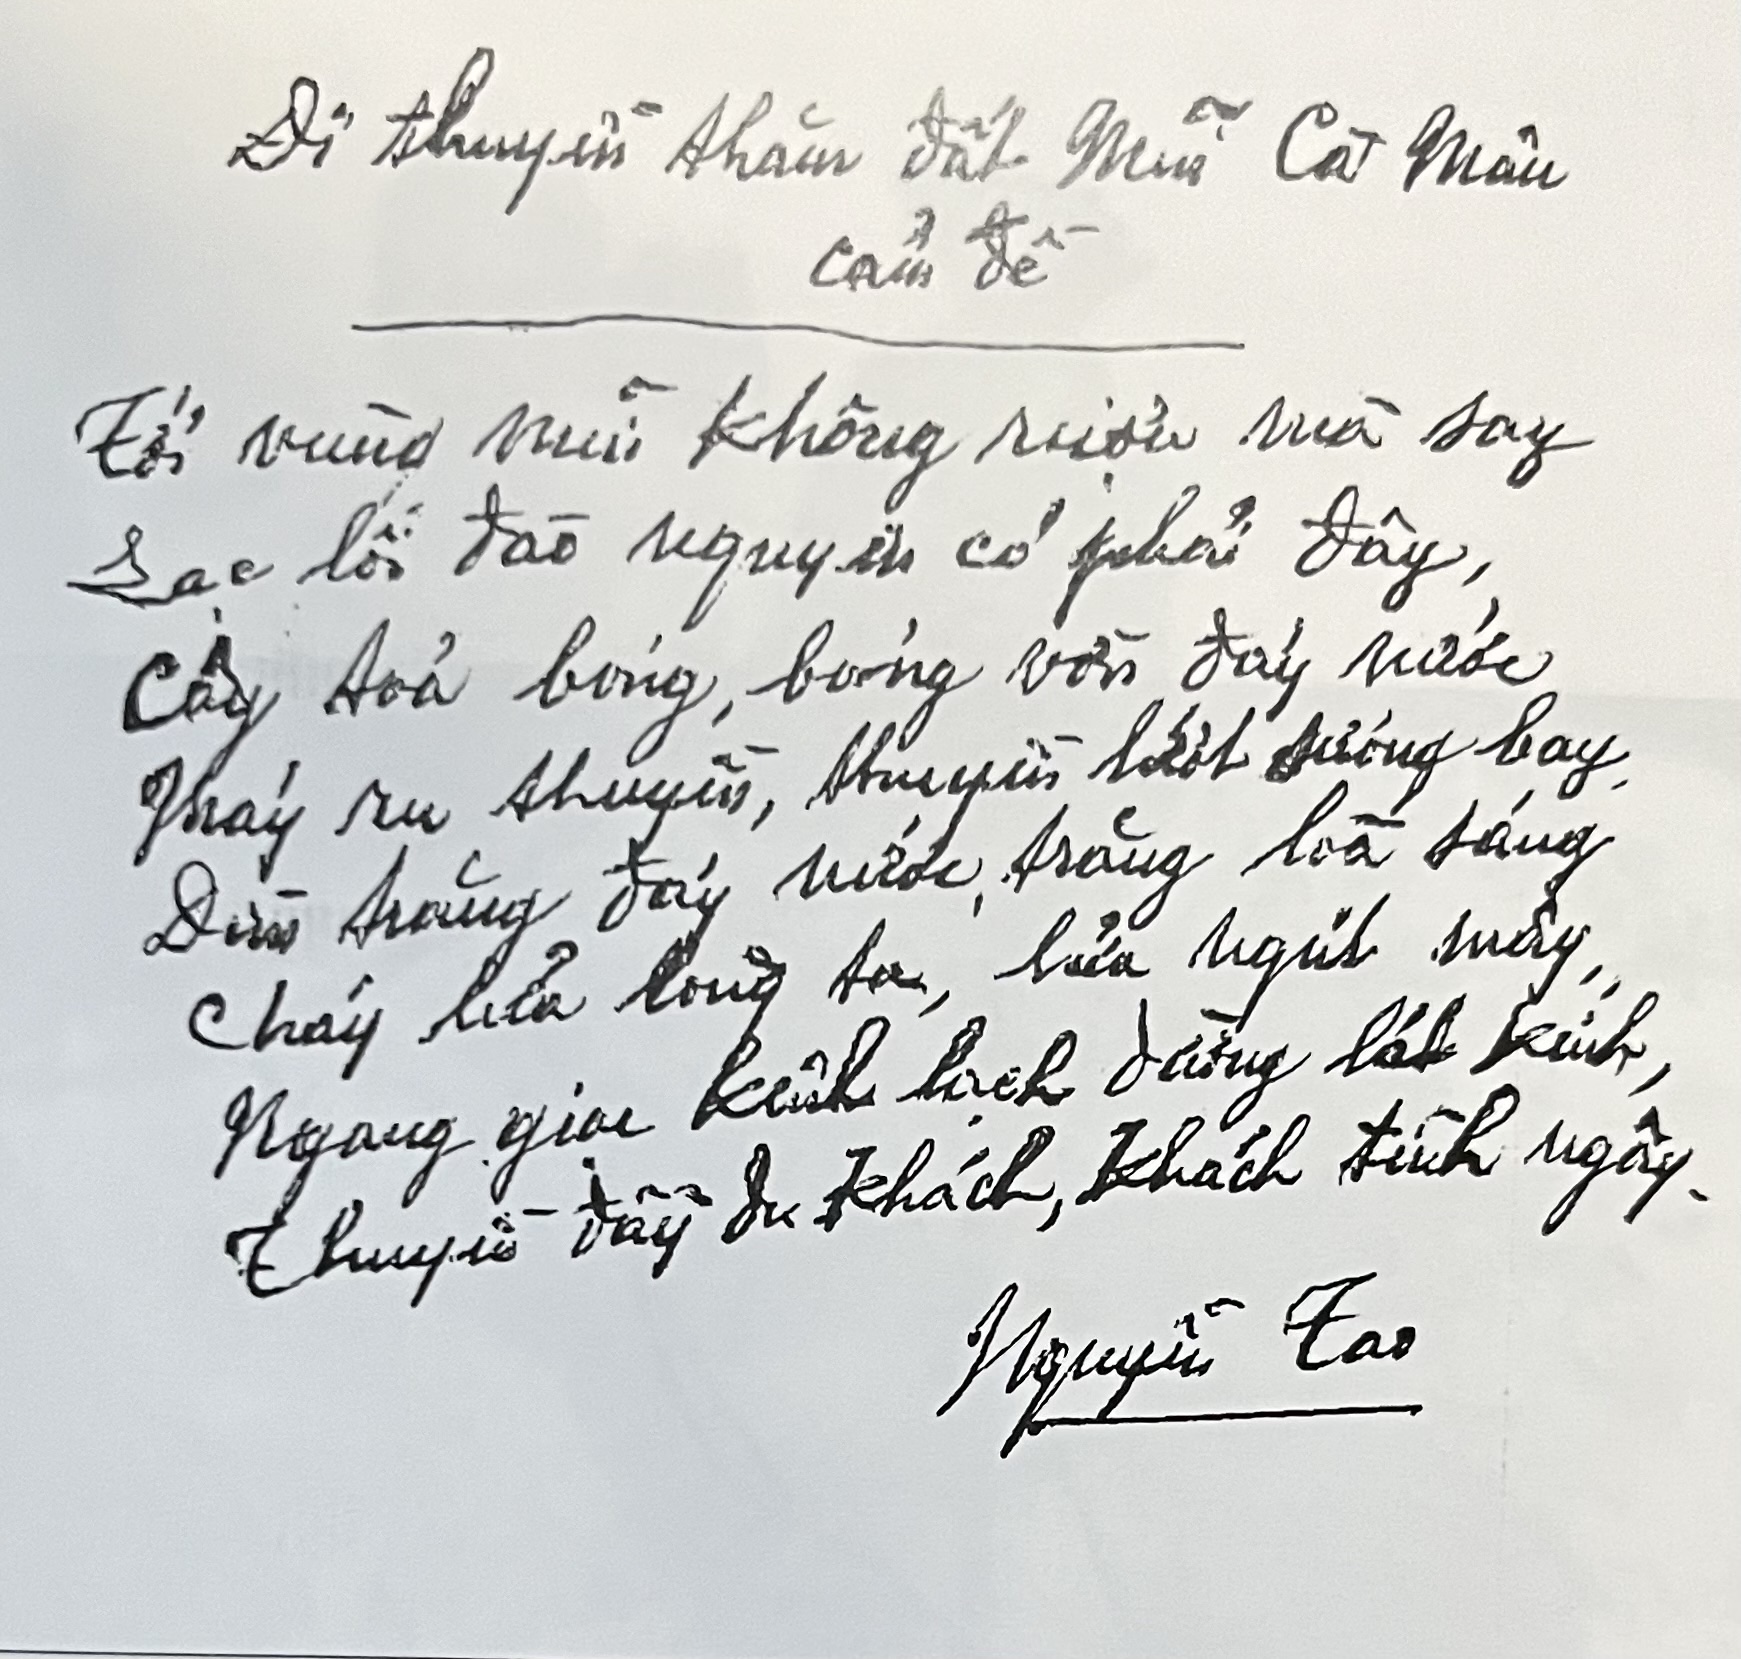 Đi thuyền thăm đất Mũi Cà Mâu
cảm đề
Tới vùng mũi không rượu mà say
Lạc lối đào nguyên có phải đây,
Cây toả bóng, bóng vờn đáy nước
Máy ru thuyền, thuyền lướt sương bay.
Dờn trăng đáy nước, trăng loà sáng
Cháy lửa lòng ta, lửa ngút mây,
Ngang giọc kênh lạch đường lát kính,
Thuyền đầy du khách, khách tình ngây.
Nguyễn Tạo